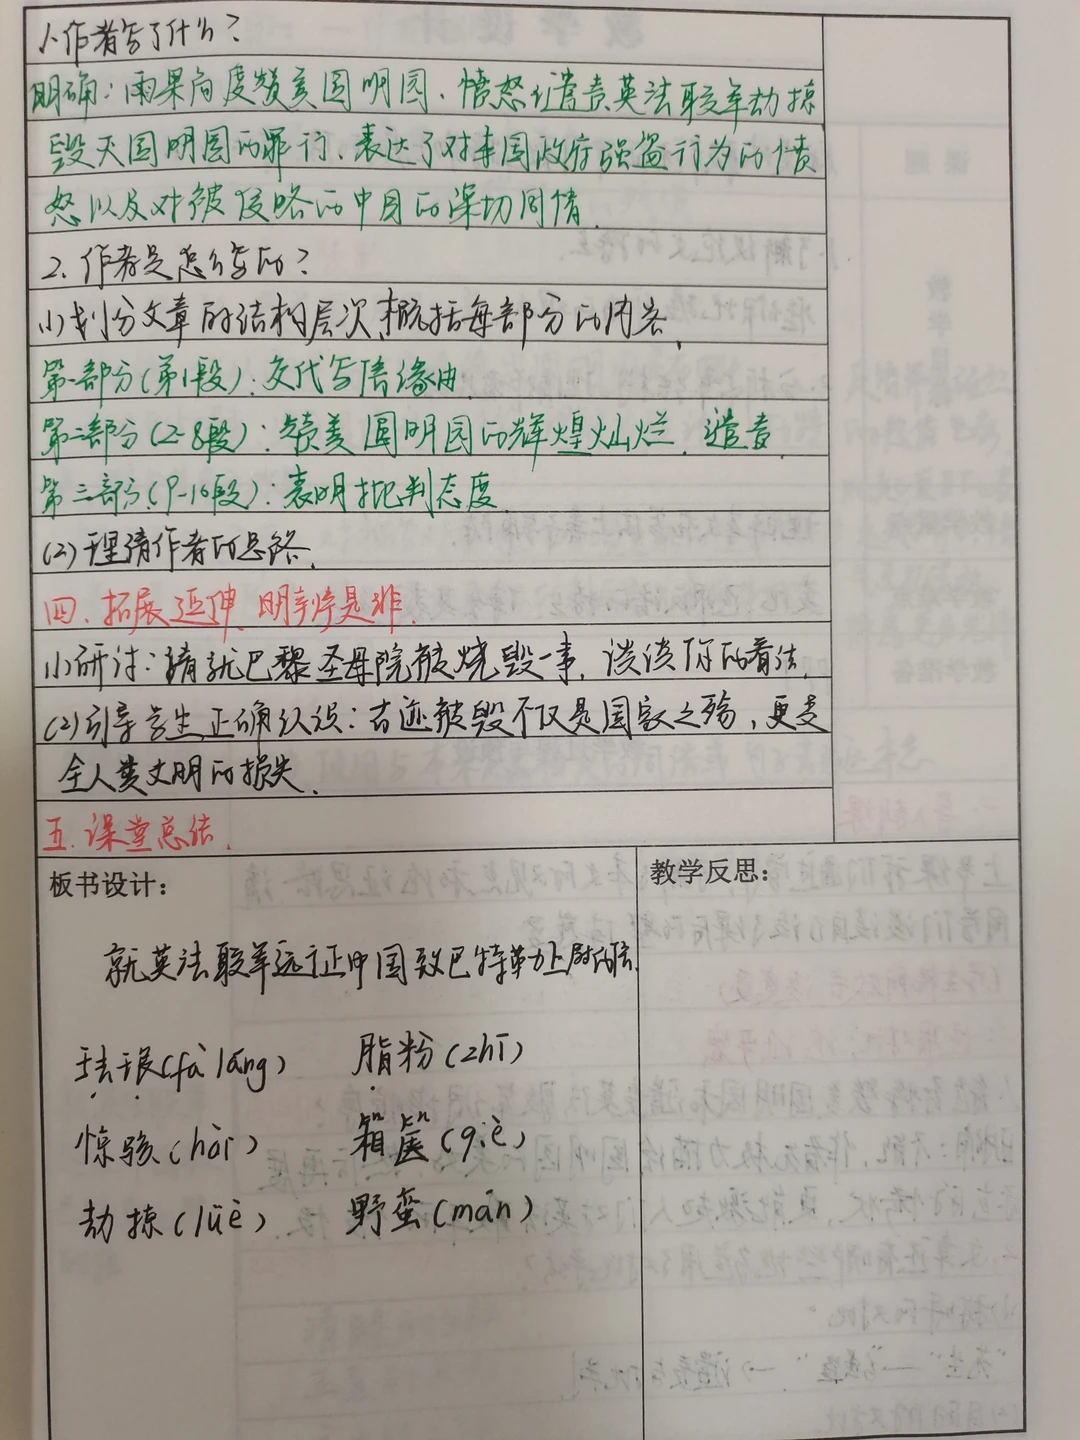 1.作者写了什么?
明确:雨果高度赞美圆明园,愤怒谴责英法联军劫掠
毁灭圆明园的罪行,表达了对本国政府强盗行为的愤
怒以及对被侵略的中国的深切同情.
2.作者是怎么写的?
(1)划分文章的结构层次,概括每部分的内容.
第一部分(第1段):交代写信缘由.
第二部分(2-8段):赞美圆明园的辉煌灿烂,谴责.
第三部分(9-10段):表明批判态度.
(2)理清作者的思路.
四.拓展延伸,明辨是非.
(1)研讨:请就巴黎圣母院被烧毁一事,谈谈你的看法.
(2)引导学生正确认识:古迹被毁不仅是国家之殇,更是
全人类文明的损失.
五.课堂总结.
板书设计:
教学反思:
就英法联军远征中国致巴特勒上尉的信
珐琅(fà láng) 脂粉(zhī)
惊骇(hài) 箱箧(qiè)
劫掠(lüè) 野蛮(mán)